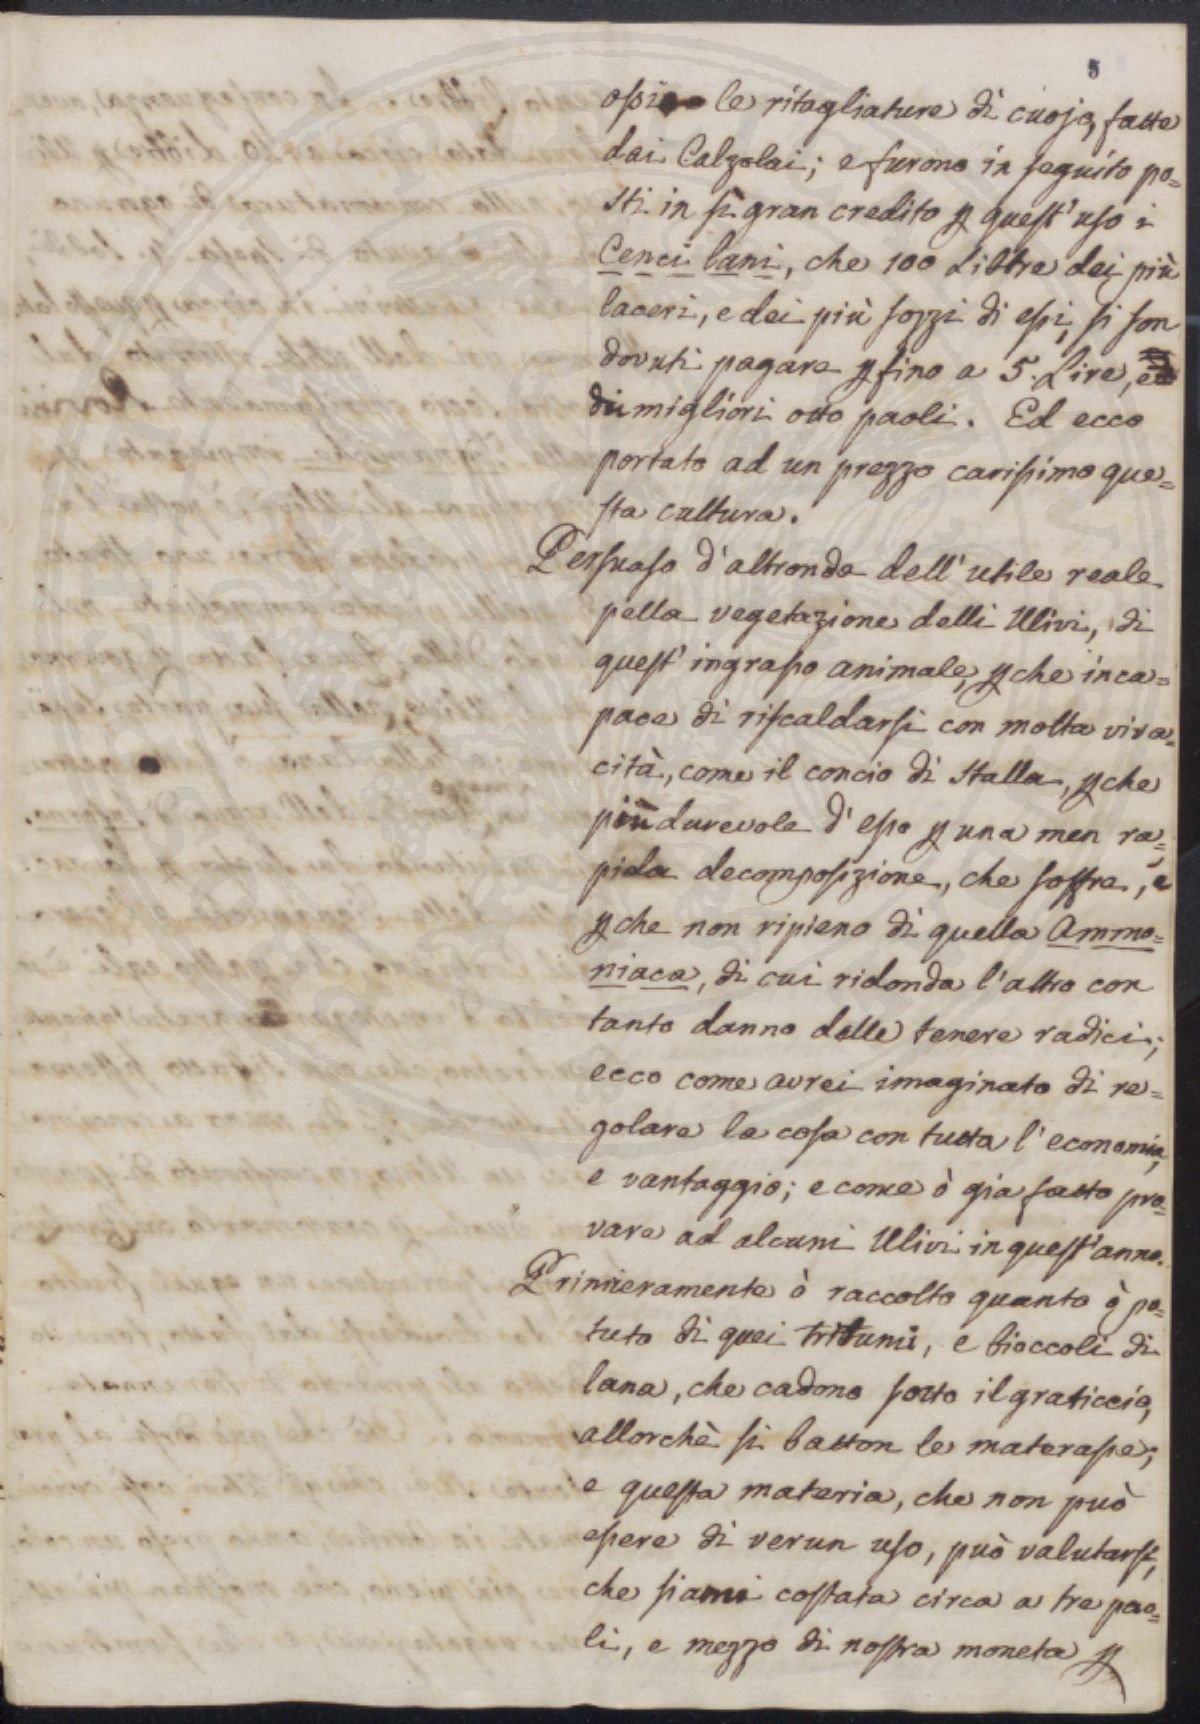 8
ossia le ritagliature di cuojo, fatte
dai Calzolai; e furono in seguito po=
sti in sì gran credito p quest' uso i
Cenci lani, che 100 Libbre dei più
laceri, e dei più sozzi di essi, si son
dovuti pagare p fino a 5. Lire, e
dii migliori otto paoli. Ed ecco
portato ad un prezzo carissimo que=
sta cultura.
Persuaso d'altronde dell' utile reale
pella vegetazione delli Ulivi, di
quest' ingrasso animale, p che inca=
pace di riscaldarsi con molta viva=
cità, come il concio di Stalla, p che
più durevole d' esso p una men ra=
pida decomposizione, che soffre, e
p che non ripieno di quella Ammo=
niaca, di cui ridonda l'altro con
tanto danno delle tenere radici;
ecco come avrei imaginato di re=
golare la cosa con tutta l' economia,
e vantaggio; e come ò gia fatto pro=
vare ad alcuni Ulivi in quest' anno.
Primieramente ò raccolto quanto ò po=
tuto di quei tritumi, e bioccoli di
lana, che cadono sotto il graticcio,
allorchè si batton le materasse;
e questa materia, che non può
essere di verun uso, può valutarsi,
che siami costata circa a tre pao=
li, e mezzo di nostra moneta p